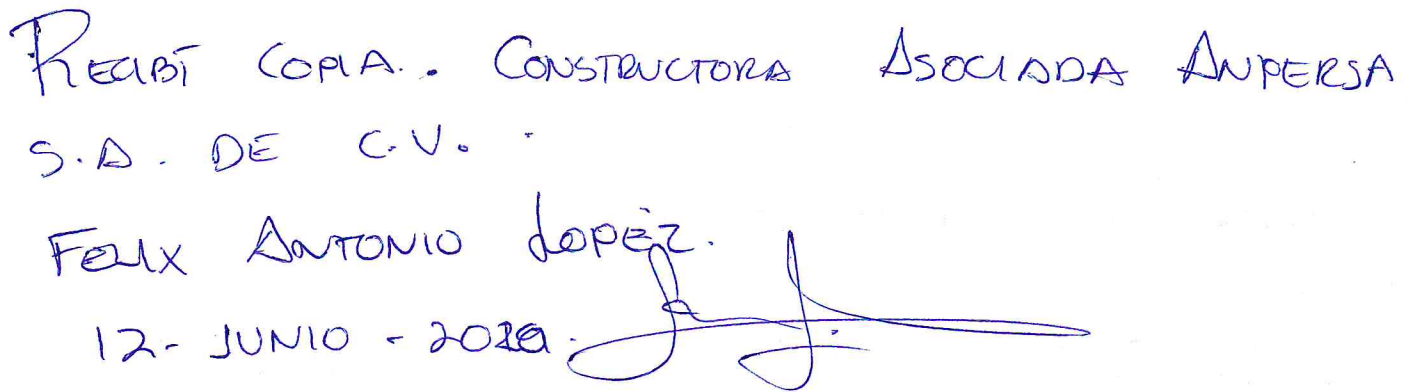 RECIBÍ COPIA.. CONSTRUCTORA ASOCIADA ANPERSA
S.A. DE C.V.
FELIX ANTONIO LOPEZ.
12- JUNIO -